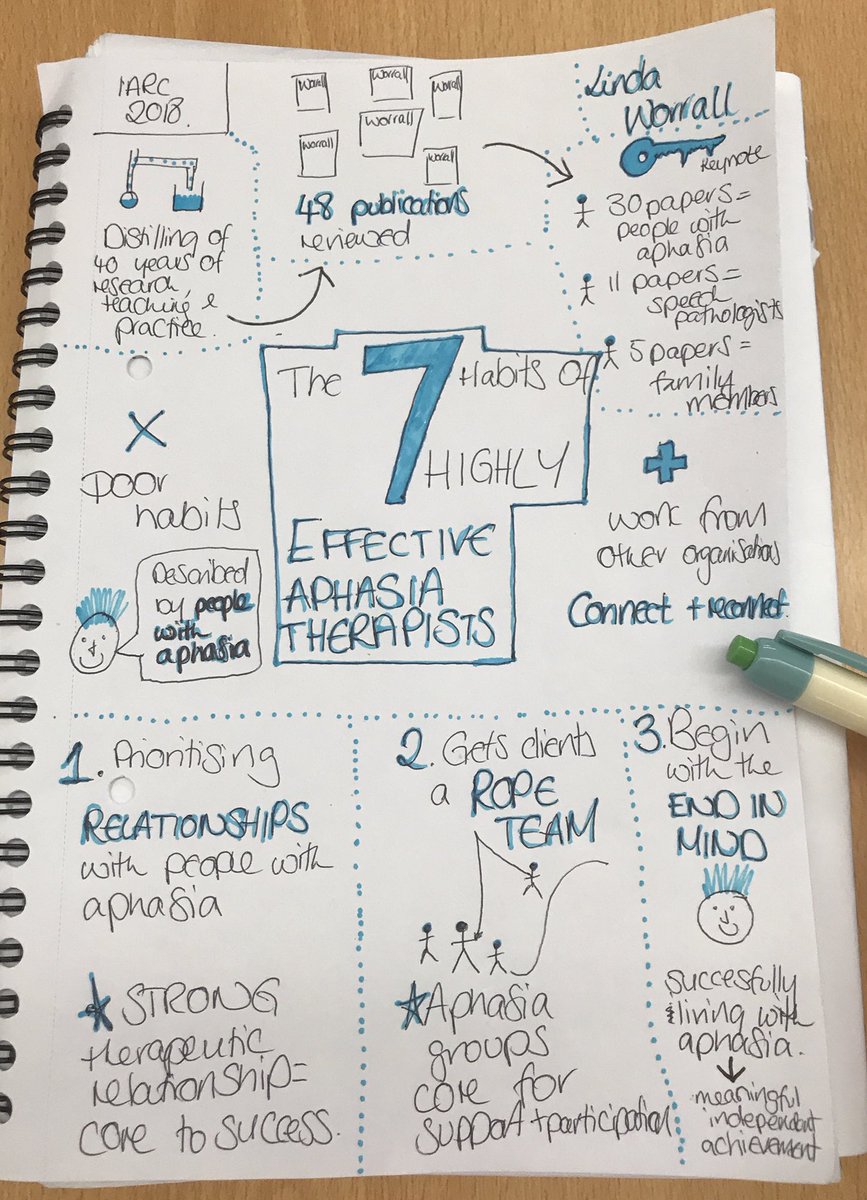 IARC
2018.
Distilling of
40 years of
research,
teaching &
practice.
Worrall
Worrall
Worrall
Worrall
Worrall
Worrall
48 publications
reviewed
Linda
Worrall
Keynote
30 papers =
people with
aphasia
11 papers =
speech
pathologists
5 papers =
family
members
The 7 Habits of
HIGHLY
EFFECTIVE
APHASIA
THERAPISTS
X
Poor
habits
Described
by people
with
aphasia
+
work from
other organisations
Connect + reconnect.
1. Prioritising
RELATIONSHIPS
with people with
aphasia
STRONG
therapeutic
relationship =
core to success.
2. Gets clients
a ROPE
TEAM
Aphasia
groups
core for
support + participation
3. Begin
with the
END IN
MIND
succesfully
living with
aphasia.
meaningful
independent
achievement